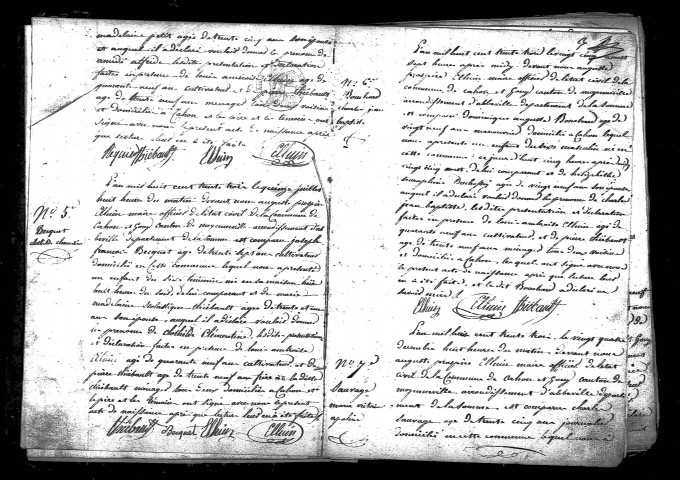 madelaine petit agée de trente cinq ans son épouse
et auquel il a déclaré vouloir donner le prénom de
alfred. les dites présentation et déclaration
faites en présence de louis ambroise Elluin agé de
quarante neuf ans cultivateur et de pierre thiébault
agé de trente neuf ans menager tous deux
domiciliés à Cahon et le père et les témoins ont
signé avec nous le présent acte de naissance après
que lecture leur en a été faite
thiébault Elluin Elluin
N° 5.
Becquet
clotilde clémentine
L'an mil huit cent trente trois le juillet
huit heure du matin devant nous auguste prospère
Elluin maire officier de l'état civil de la Commune de
Cahon et Gouy canton de moyenneville arrondissement d'ab
beville département de la somme est comparu joseph
françois Becquet agé de trente sept ans cultivateur
domicilié en cette commune lequel nous a présenté
un enfant du sexe féminin né en sa maison hier
huit heure du soir de lui comparant et de marie
madelaine scholastique thiébault agée de trente
ans son épouse, auquel il a déclaré vouloir donner
le prénom de clotilde Clémentine les dites présentation
et déclaration faites en présence de louis ambroise
Elluin agé de quarante neuf ans cultivateur et de
pierre thiébault agé de trente neuf ans frère de la dite
thiébault ménager tous deux domiciliés à Cahon et
le père et les témoins ont signé avec nous le présent
acte de naissance après que lecture leur en a été faite
thiébault Becquet Elluin Elluin
N° 6
Bouchard
charles jean
baptiste
L'an mil huit cent trente trois le vingt cinq
sept heure après midy devant nous auguste
prospère Elluin maire officier de l'état civil de la
commune de cahon et Gouy canton de moyenneville
arrondissement d'abbeville département de la somme
est comparu dominique auguste Bouchard agé de
vingt neuf ans manouvrier domicilié à cahon lequel
nous a présenté un enfant du sexe masculin né en
cette commune ce jourd'huit cinq heure après midy
de lui comparant et de
agée de vingt neuf ans son épouse,
auquel il a déclaré vouloir donner le prénom de charles
jean baptiste, les dites présentation et déclaration
faites en présence de louis ambroise Elluin agé de
quarante neuf ans cultivateur et de pierre thiébault
agé de trente neuf ans ménager tous deux
et domiciliés à Cahon, lesquels ont signé avec nous
le présent acte de naissance après que lecture leur
en a été faite, et le dit Bouchard a déclaré ne
savoir signer
Elluin Elluin thiébault
N° 7
Sauvage
marie
L'an mil huit cent trente trois. le vingt quatre
décembre huit heure du matin, devant nous
auguste prospère Elluin maire officier de l'état
civil de la Commune de Cahon et Gouy canton de
moyenneville arrondissement d'abbeville départe
ment de la somme, est comparu charles
sauvage agé de trente cinq ans journalier
domicilié en cette commune lequel nous a